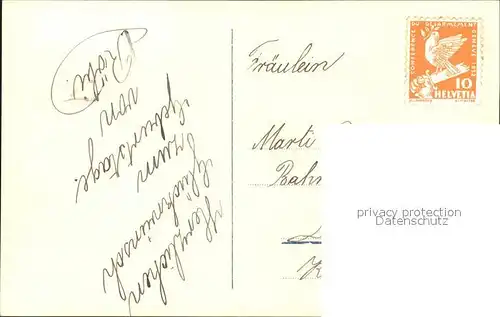 Herzlichen
Glückwünsch
zum
Geburtstage.
von
Rösli.
Fräulein
Marti
Bahn
K
CONFERENCE DU DESARMEMENT GENEVE 1932
10
HELVETIA
privacy protection
Datenschutz